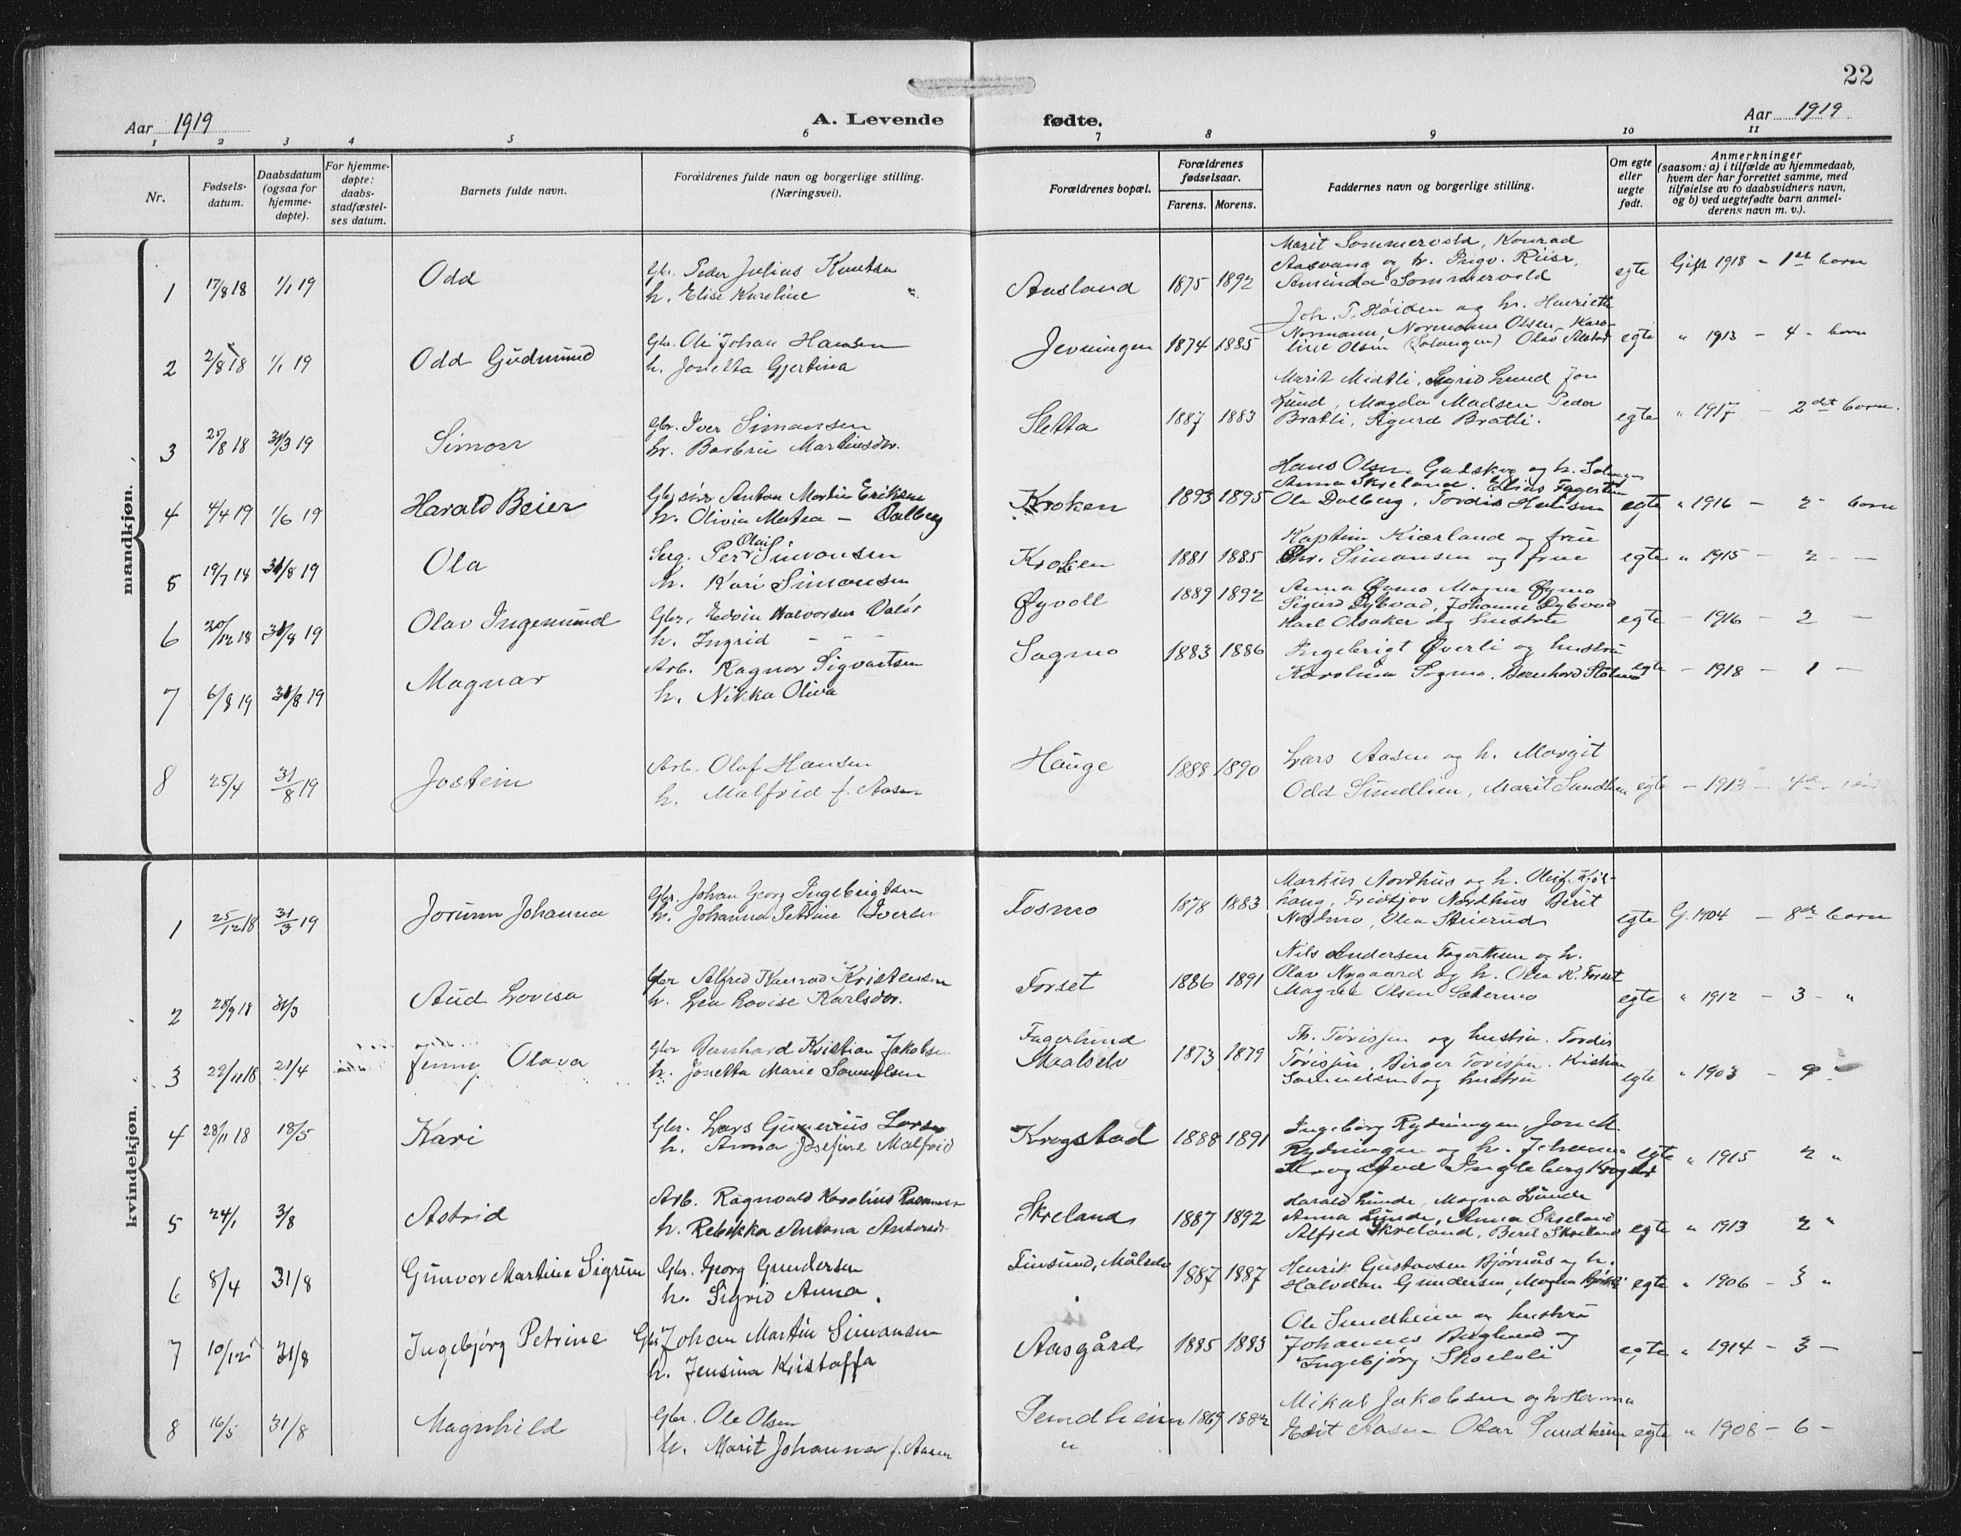 22
Aar 1919 A. Levende fødte. Aar 1919
1 2 3 4 5 6 7 8 9 10 11
Nr.
Fødsels-
datum.
Daabsdatum
(ogsaa for
hjemme-
døpte).
For hjemme-
døpte:
daabs-
stadfæstel-
ses datum.
Barnets fulde navn.
Forældrenes fulde navn og borgerlige stilling.
(Næringsvei).
Forældrenes bopæl.
Forældrenes
fødselsaar.
Farens. Morens.
Faddernes navn og borgerlige stilling.
Om egte
eller
uegte
født.
Anmerkninger
(saasom: a) i tilfælde av hjemmedaab,
hvem der har forrettet samme, med
tilføielse av to daabsvidners navn,
og b) ved uegtefødte barn anmel-
derens navn m. v.).
mandkjøn.
1 17/8 18 1/1 19 Odd
Gbr. Peder Julius Knutsen
h. Elise Kareline "
Aasland 1875 1892
Marit Sommervold, Konrad
Aasvang og h. Ingv. Riise,
Aminda Sommervold
egte Gift 1918 - 1ste barn
2 2/8 18 1/1 19 Odd Gudmund
Gbr. Ole Johan Hansen
h. Jonetta Gjertina
Jevningen 1874 1885
Joh. T. Høiden og h. Henriette
Normann, Normanna Olsen, Karo-
line Olsen (Salangen) Olav Alstad
egte " 1913 - 4 - barn
3 25/8 18 31/3 19 Simon
Gbr. Iver Simonsen
h. Barbru Martinsdtr.
Sletta 1887 1883
Marit Midtli, Sigrid Lund Jon
Lund, Magda Madsen Peder
Bratli, Sigurd Bratli.
egte " 1917 - 2det barn.
4 4/4 19 1/6 19 Harald Beier
Anton Martin Eriksen
h. Olivia Matea - Dalberg
Kroken 1893 1895
Hans Olsen, og h.
Anna Skreland. Elias Fagertun
Ole Dalberg, Tordis Hansen
egte " 1916 - 2 - barn
5 19/7 18 31/8 19 Ola
Serg. Per Olai Simonsen
h. Kari Simonsen
Kroken 1881 1885
Kaptein Kiærland og frue
Chr. Simonsen og frue
egte " 1915 - 2 - -
6 20/12 18 31/8 19 Olav Ingemund
Gbr. Edvin Halvorsen Valør
h. Ingrid - - -
Øyvoll 1889 1892
Anna Øymo Magne Øymo
Sigurd Dybvad, Johanne Dybvad
Karl Olsaker og hustru
egte - 1916 - 2 -
7 6/8 19 31/8 19 Magnar
Arb. Ragnar Sigvartsen
h. Nikka Oliva
Sagmo 1883 1886
Ingebrigt Øverli og hustru
Karolina Sagmo. Bernhard
egte - 1918 - 1 -
8 25/4 31/8 19 Jostein
Arb. Olaf Hansen
h. Malfrid f. Aasen
Hauge 1888 1890
Lars Aasen og h. Margit
Odd Sundheim, Marit Sundheim
egte - 1913 - 4de
kvindekjøn.
1 25/12 18 31/3 19 Jorunn Johanna
Gbr. Johan Georg Ingebrigtsen
h. Johanna Petrine Iversen
Fosmo 1878 1883
Markus Nordhus og h. Oluf
haug, Fridtjov Nordhus Berit
Nordmo, Olea Steierud
egte G. 1904 - 8de barn
2 28/9 18 31/3 Aud Lovisa
Gbr Alfred Konrad Kristensen
h. Lea Lovise Karlsdtr.
Forset 1886 1891
Nils Andersen Fagertun og h.
Olav Nygaard og h. Olea K. Forset
Magnk Olsen Sætermo
egte " 1912 - 3 - "
3 29/11 18 21/4 Jenny Olava
Gbr Bernhard Kristian Jakobsen
h. Jonetta Marie Samuelsen
Fagerlund
Maalselv 1873 1879
Th. Torissen og hustru. Tordis
Torissen, Birger Torissen. Kristian
Samuelsen og hustru
egte " 1903 - 9
4 28/11 18 18/5 Kari
Gbr. Lars Gunerius Larsen
h. Anna Josefine Malfrid
Krogstad 1888 1891
Ingeborg Rydningen, Jon
Rydningen og h. Johanna
Krogstad Ingeberg Krogstad
egte " 1915 2 "
5 24/1 3/8 Astrid
Arb. Ragnvald Karolius Rasmussen
h. Rebekka Antona Andersdtr.
Skreland 1887 1892
Harald Lunde, Magna Lunde
Anna Lunde, Anna Skreland
Alfred Skreland, Berit Skreland
egte " 1913 2 "
6 8/4 31/8 Gunvor Martine Sigrun
Gbr. Georg Gundersen
h. Sigrid Anna.
Finsund, Målselv 1887 1887
Henrik Gustavsen Bjørnås og h.
Halvdan Gundersen, Magna
egte " 1906 - 3 "
7 10/12 31/8 Ingebjørg Petrine
Gbr Johan Martin Simonsen
h. Jensina Kristoffa
Aasgård 1885 1883
Ole Sundheim og hustru
Johannes Berglund og
Ingebjørg Skoelvli
egte " 1914 - 3 -
8 16/5 31/8 Magnhild
Gbr. Ole Olsen
h. Marit Johanna f. Aasen
Sundheim 1869 1882
"
Mikal Jakobsen og h. Herma
Edit Aasen - Olar Sundheim
egte " 1908 - 6 -